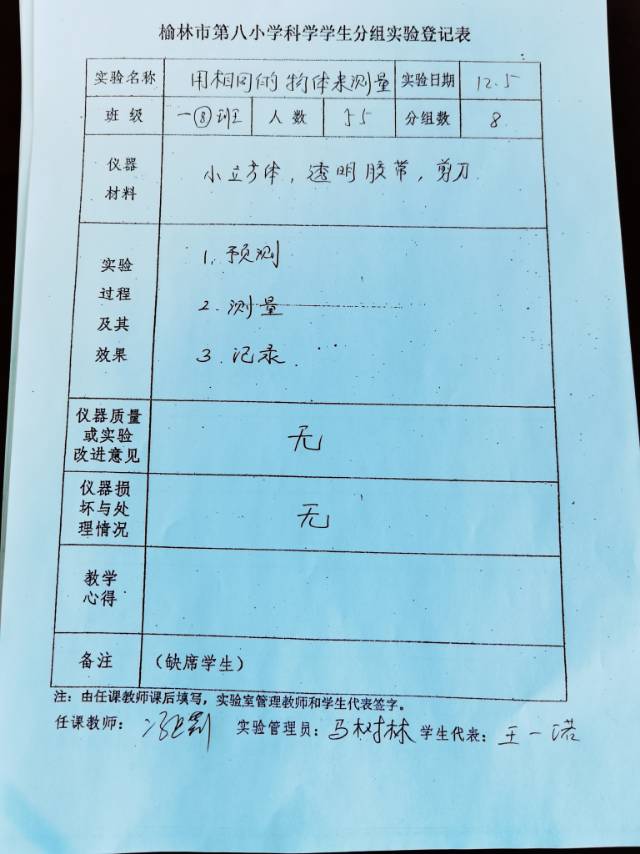 榆林市第八小学科学学生分组实验登记表
实验名称 用相同的物体来测量 实验日期 12.5
班 级 一⑧班 人 数 55 分组数 8
仪器
材料
小立方体，透明胶带，剪刀
实验
过程
及其
效果
1. 预测
2. 测量
3. 记录
仪器质量
或实验
改进意见
无
仪器损
坏与处
理情况
无
教学
心得
备注 （缺席学生）
注：由任课教师课后填写，实验室管理教师和学生代表签字。
任课教师： 实验管理员：马树林 学生代表：王一诺